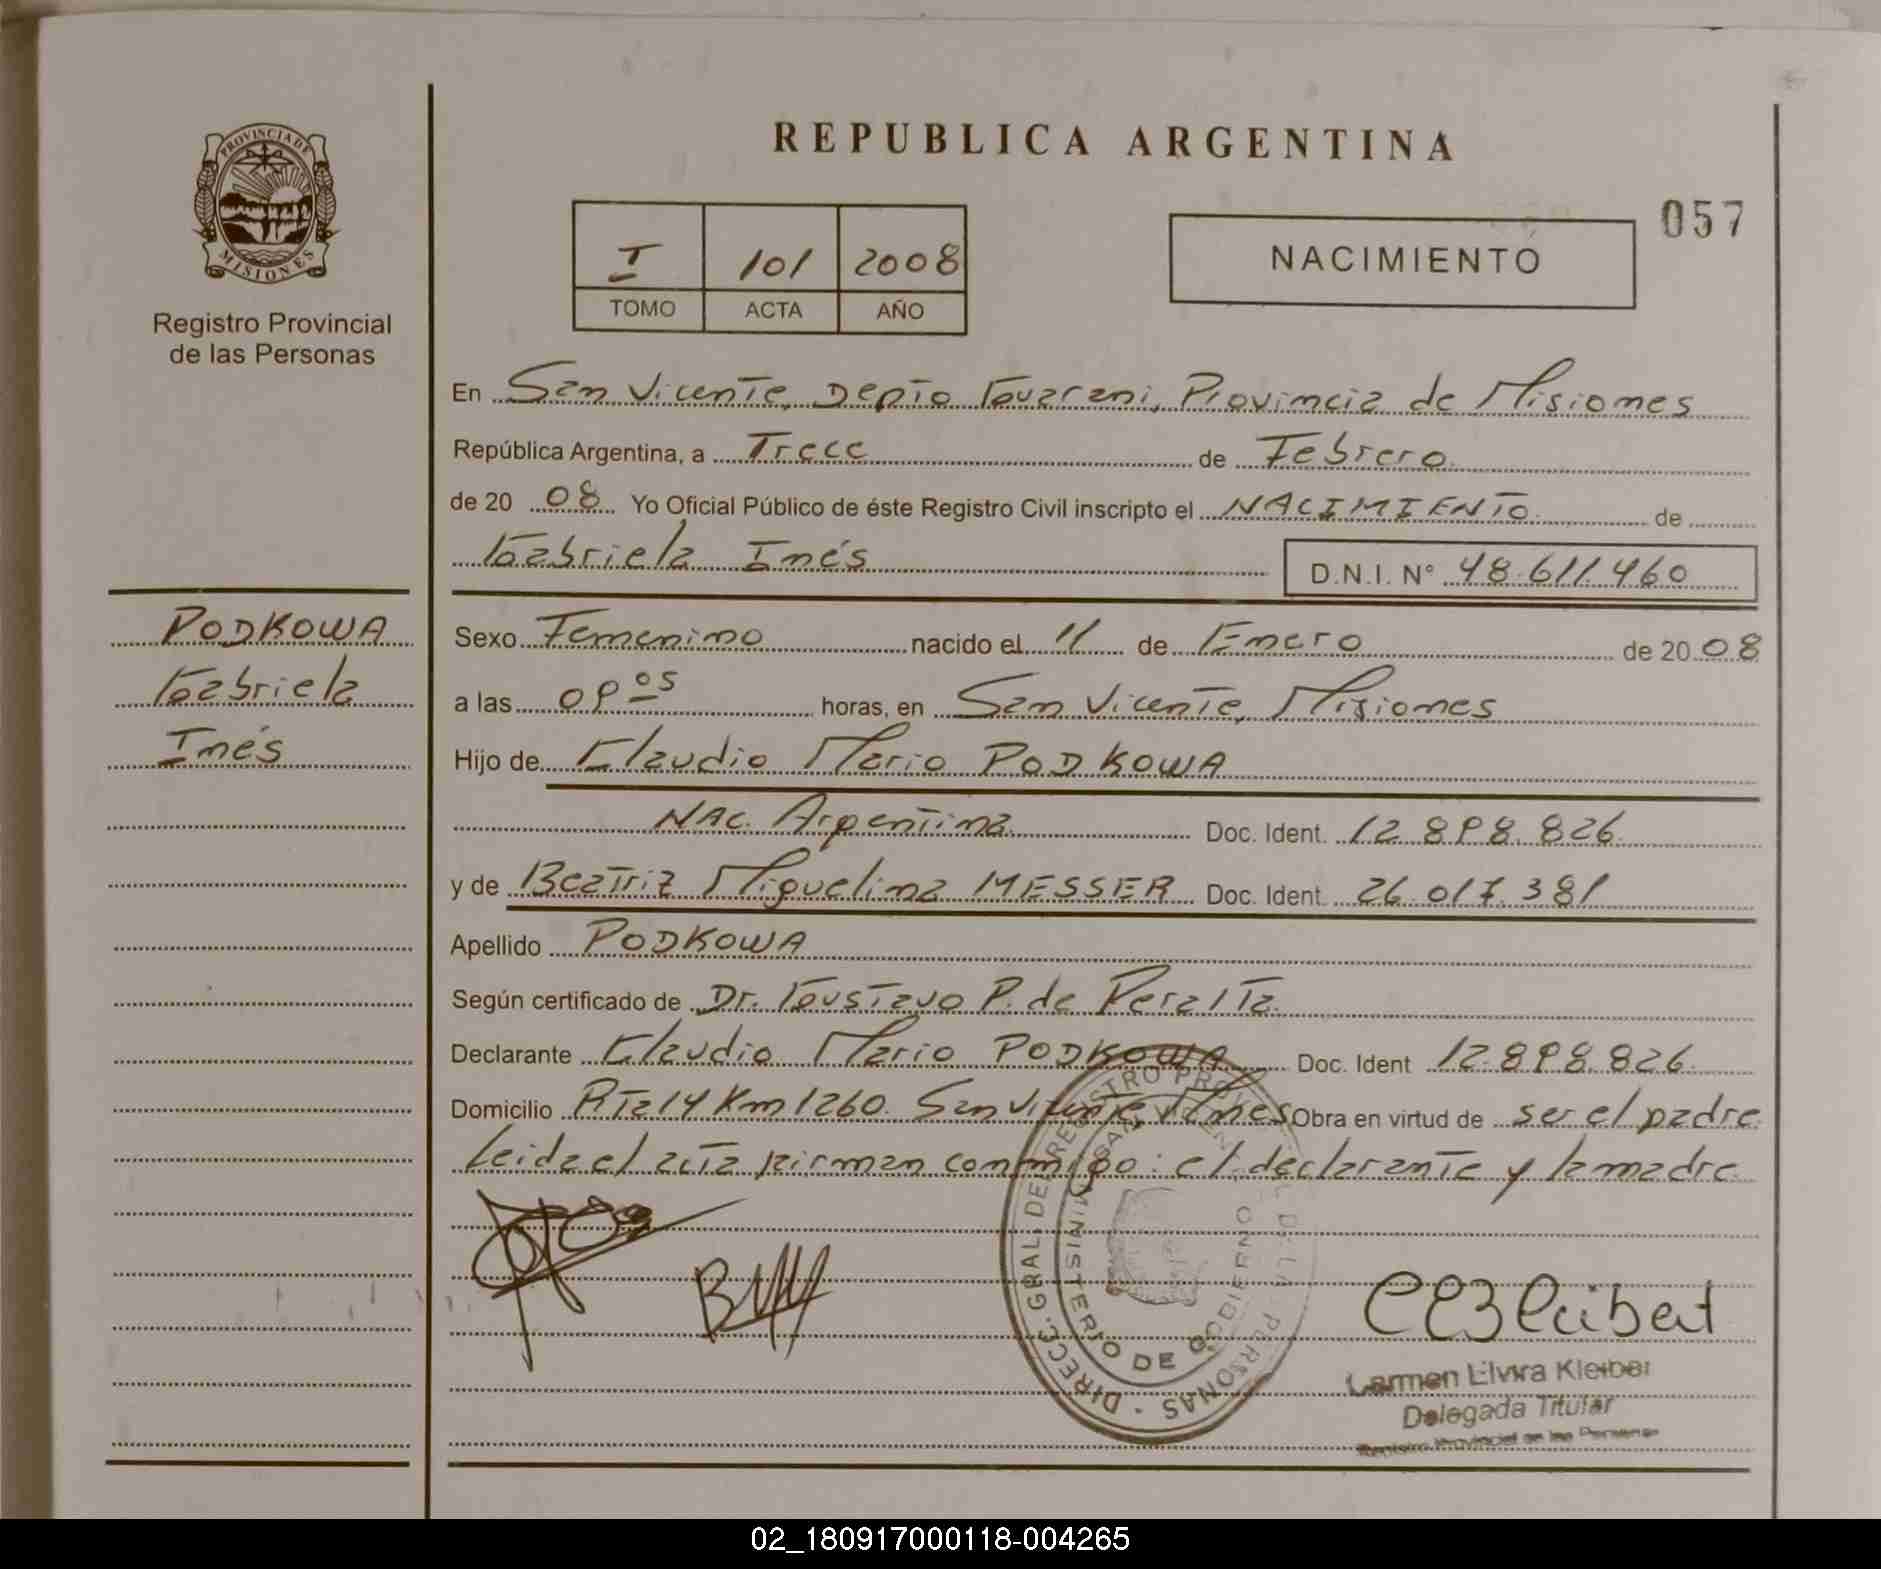 PROVINCIA DE
MISIONES
Registro Provincial
de las Personas
REPUBLICA ARGENTINA
057
I 101 2008
TOMO ACTA AÑO
NACIMIENTO
En San Vicente, Depto Guarani, Provincia de Misiones
República Argentina, a Trece de Febrero
de 20 08 Yo Oficial Público de éste Registro Civil inscripto el NACIMIENTO de
Gabriela Inés D.N.I. N° 48.611.460
PODKOWA
Gabriela
Inés
Sexo Femenino nacido el 11 de Enero de 20 08
a las 09 os horas, en San Vicente, Misiones
Hijo de Claudio Mario PODKOWA
Nac. Argentina Doc. Ident. 12.898.826
y de Beatriz Miguelina MESSER Doc. Ident. 26.017.381
Apellido PODKOWA
Según certificado de Dr. Gustavo P. de Peralta
Declarante Claudio Mario PODKOWA Doc. Ident 12.898.826
Domicilio Rta 14 Km 1260. San Vicente Mnes Obra en virtud de ser el padre
Leida el acta firman conmigo: el declarante y la madre
DIRECC. GRAL. DEL REGISTRO PROV. DE LAS PERSONAS
MINISTERIO DE GOBIERNO
SAN VICENTE
Carmen Elvira Kleiber
Delegada Titular
Registro Provincial de las Personas
02_180917000118-004265